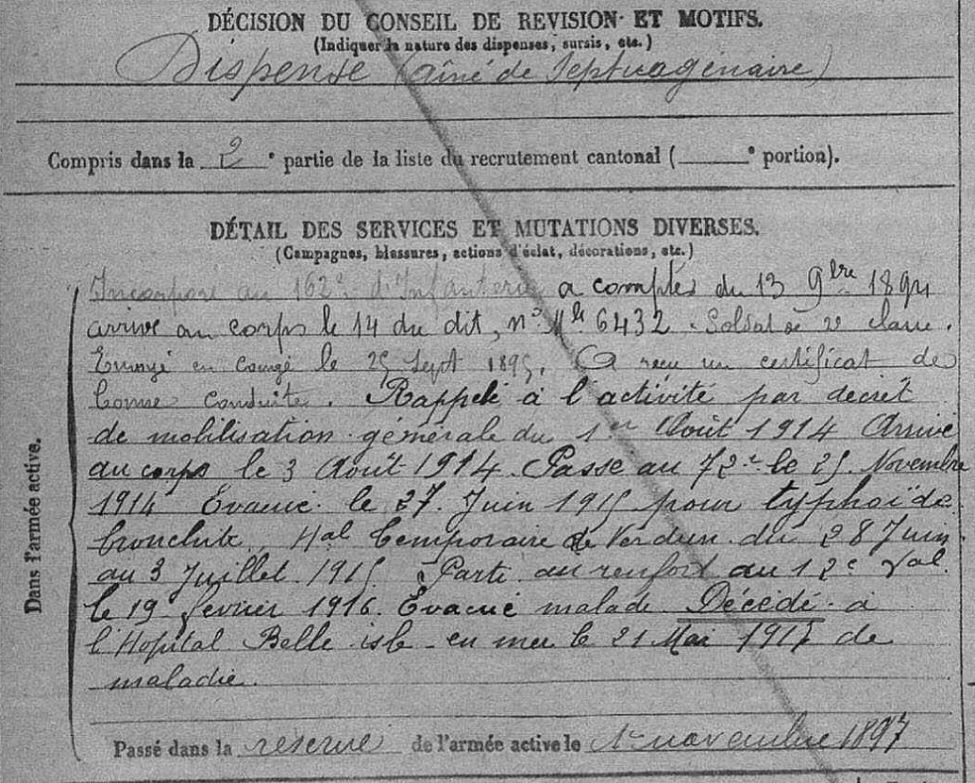 DÉCISION DU CONSEIL DE REVISION ET MOTIFS.
(Indiquer la nature des dispenses, sursis, etc.)
Dispensé (aîné de Septuagénaire)
Compris dans la 2 e partie de la liste du recrutement cantonal ( e portion).
DÉTAIL DES SERVICES ET MUTATIONS DIVERSES.
(Campagnes, blessures, actions d'éclat, décorations, etc.)
Dans l'armée active.
Incorporé au 162e d'Infanterie a compter du 13 9bre 1894
arrivé au corps le 14 du dit, no Mle 6432. Soldat de 2e classe.
Envoyé en congé le 25 Sept 1895. A reçu un certificat de
bonne conduite. Rappelé à l'activité par decret
de mobilisation générale du 1er Août 1914 Arrivé
au corps le 3 Août 1914. Passé au 72e le 25 Novembre
1914 Évacué le 27 Juin 1915 pour typhoïde
bronchite. Hal temporaire de Verdun du 28 Juin
au 3 Juillet 1915. Parti au renfort au 12e
le 19 fevrier 1916. Évacué malade Décédé à
l'Hopital Belle isle en mer le 21 Mai 1917 de
maladie.
Passé dans la réserve de l'armée active le 1er novembre 1897